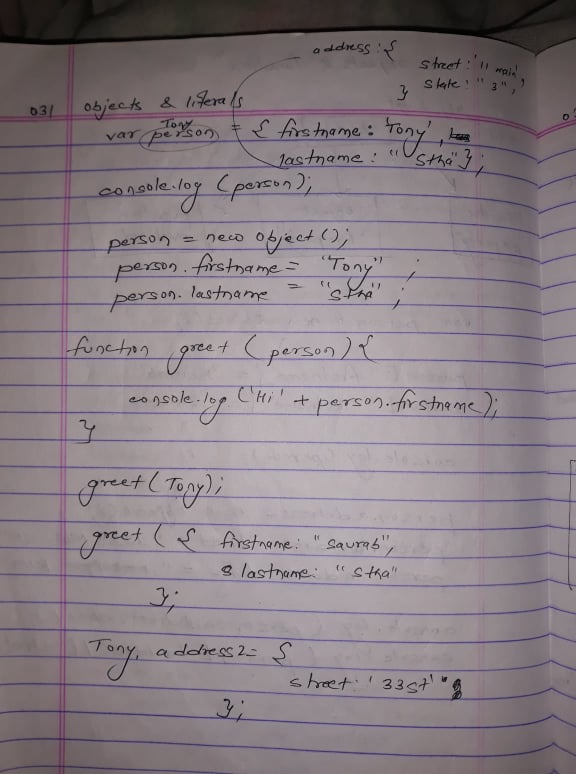 address : {
street : '11 main',
state : "3",
}
031 objects & literals
Tony
var person = { firstname : 'Tony',
lastname : "Stha" };
console.log (person);
person = new object ();
person. firstname = "Tony" ;
person. lastname = "Stha" ;
function greet ( person ) {
console.log ('Hi' + person.firstname);
}
greet ( Tony );
greet ( { firstname: "saurab",
lastname: "Stha"
};
Tony. address2 = {
street: '33st'
};